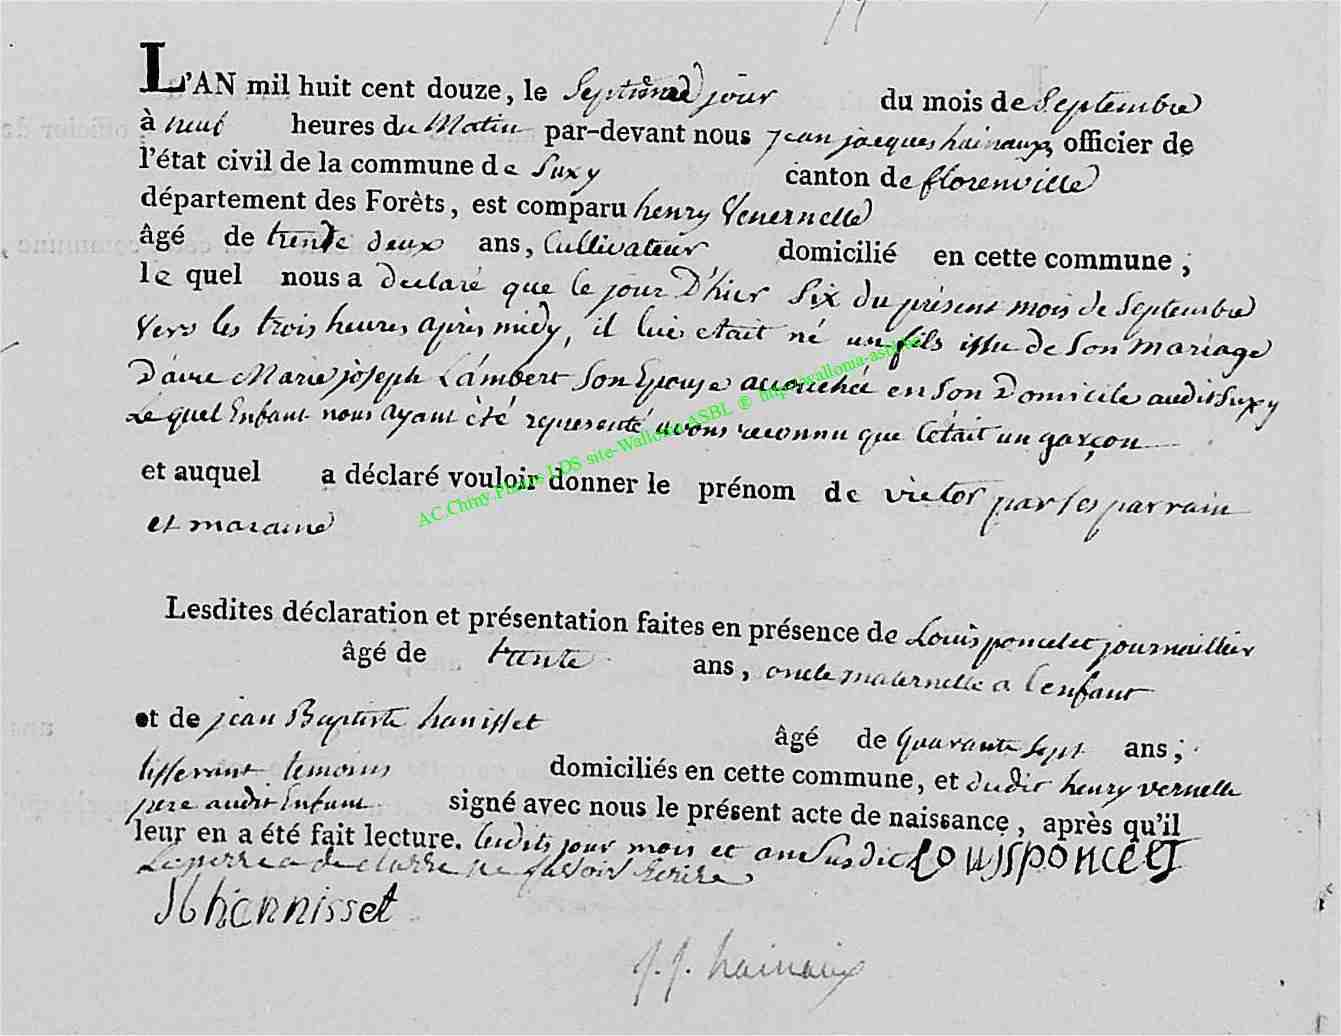 L'AN mil huit cent douze, le Septième jour du mois de Septembre
à neuf heures du Matin par-devant nous jean jacques hainaux, officier de
l'état civil de la commune de Suxy canton de florenville
département des Forêts, est comparu henry Venernelle
âgé de trente deux ans, Cultivateur domicilié en cette commune ;
le quel nous a declaré que le jour D'hier Six du présent mois de Septembre
Vers les trois heures après midy, il lui etait né un fils issu de Son mariage
D'avec Marie joseph Lambert Son Epouse accouchée en Son Domicile audit Suxy
Lequel Enfant nous ayant été representé avons reconnu que C'était un garçon
et auquel a déclaré vouloir donner le prénom de victor par ses parrain
et maraine
AC.Chiny.Photos LDS site-Walloma ASBL ® http://walloma-asbl.be
Lesdites déclaration et présentation faites en présence de Louis poncelet journaillier
âgé de trante ans, oncle maternelle a l'enfant
et de jean Baptiste hanisset âgé de Quarante Sept ans ;
tisserant temoins domiciliés en cette commune, et dudit henry vernelle
pere audit Enfant signé avec nous le présent acte de naissance, après qu'il
leur en a été fait lecture. lesdits jour mois et an Susdit Louis Poncelet
Le perre a declarre ne savoir Ecrire
JB hannisset
J. J. hainaux